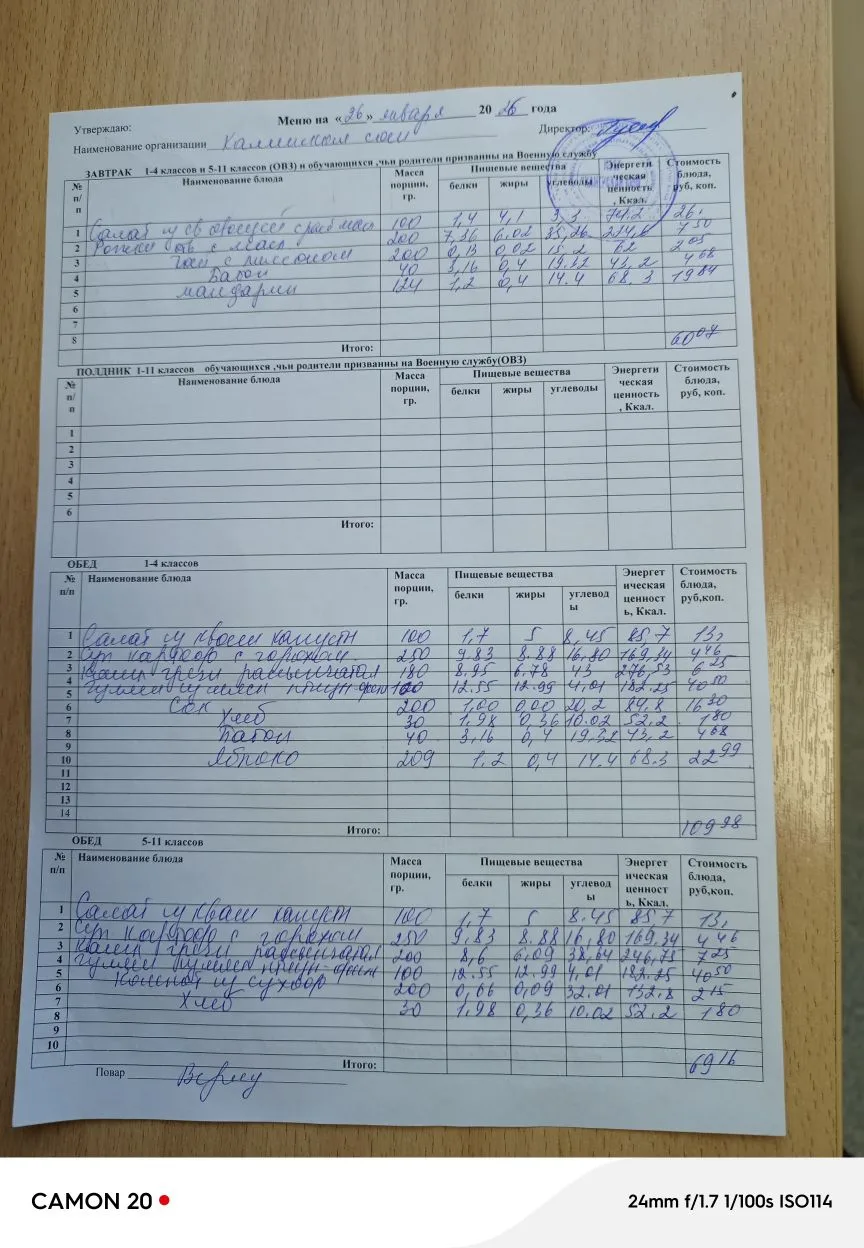 Утверждаю: Меню на «26» января 2026 года
Наименование организации Директор:
ЗАВТРАК 1-4 классов и 5-11 классов (ОВЗ) и обучающихся ,чьи родители призванны на Военную службу
№ п/п Наименование блюда Масса порции, гр. Пищевые вещества белки жиры углеводы Энергетическая ценность, Ккал. Стоимость блюда, руб, коп.
1 Салат 100 1,4 4,1 3,3 74,2 26,
2 с 200 7,36 6,02 35,26 7 50
3 с лимоном 200 0,13 0,02 15.2 62 2 05
4 Батон 40 3,16 0,4 19.32 43,2 4 68
5 мандарин 124 1,2 0,4 14.4 68.3 19 84
6
7
8
Итого: 60 07
ПОЛДНИК 1-11 классов обучающихся ,чьи родители призванны на Военную службу(ОВЗ)
№ п/п Наименование блюда Масса порции, гр. Пищевые вещества белки жиры углеводы Энергетическая ценность, Ккал. Стоимость блюда, руб, коп.
1
2
3
4
5
6
Итого:
ОБЕД 1-4 классов
№ п/п Наименование блюда Масса порции, гр. Пищевые вещества белки жиры углеводы Энергетическая ценность, Ккал. Стоимость блюда, руб,коп.
1 Салат из кваш капусты 100 1,7 5 8,45 85,7 13,
2 Суп картофор с горохом 250 9.83 8.88 16,80 169,34 4 46
3 Каша греч рассыпчатая 180 8,95 6.78 43 276,53 6 25
4 Гуляш из 12.55 12.99 4,01 182.25 40 50
5
6 Сок 200 1,00 0,00 20,2 84,8 16 30
7 Хлеб 30 1,98 0,36 10.02 52.2 1 80
8 Батон 40 3,16 0,4 19,32 43,2 4 68
9
10 Яблоко 209 1.2 0,4 14.4 68.3 22 99
11
12
13
14
Итого: 109 98
ОБЕД 5-11 классов
№ п/п Наименование блюда Масса порции, гр. Пищевые вещества белки жиры углеводы Энергетическая ценность, Ккал. Стоимость блюда, руб,коп.
1 Салат из кваш капусты 100 1,7 5 8.45 85,7 13,
2 Суп картофор с горохом 250 9,83 8.88 16,80 169,34 4 46
3 Каша греч рассыпчатая 200 8,6 6,09 38,64 246,75 7 25
4 Гуляш 100 12.55 12,99 4,01 182.25 40 50
5
6 Компот из сухфр 200 0,66 0,09 32.01 132,8 2 15
7 Хлеб 30 1,98 0,36 10.02 52.2 1 80
8
9
10
Итого: 69 16
Повар
CAMON 20
24mm f/1.7 1/100s ISO114